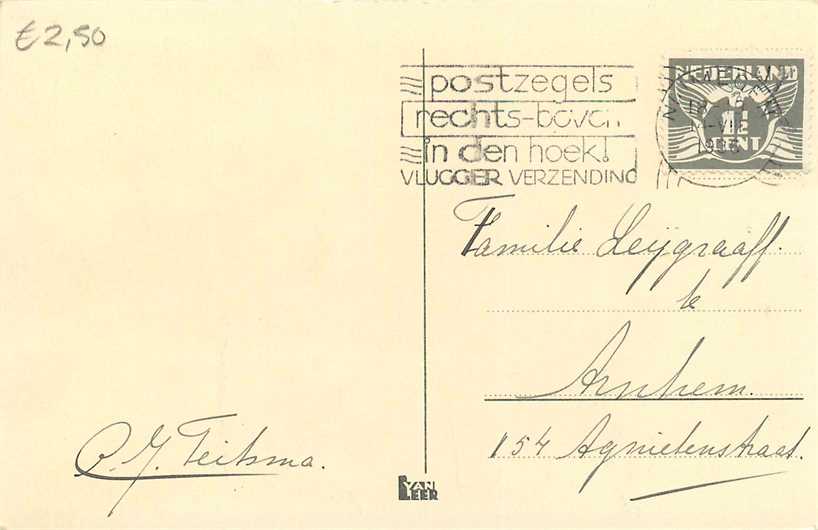 €2,50
postzegels
rechts-boven
in den hoek!
VLUGGER VERZENDING
NEDERLAND
1½
CENT
Familie Leijgraaff.
te
Arnhem.
154 Agnietenstraat.
P. J. Teitsma.
VAN
LEER